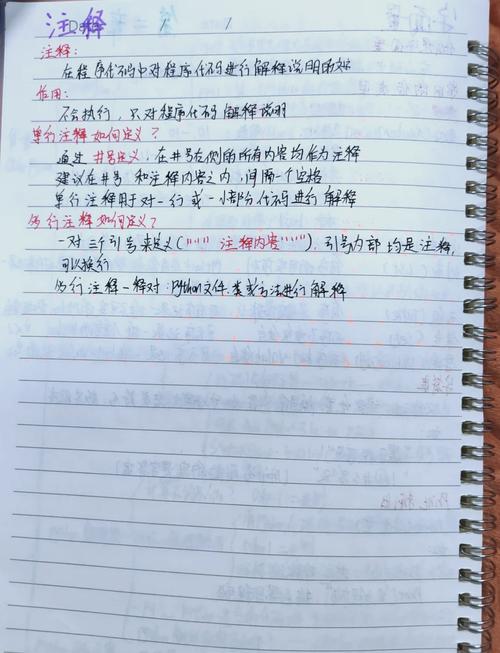 注释
Date / /
注释：
在程序代码中对程序代码进行解释说明的文字
作用：
不会执行，只对程序代码解释说明
单行注释如何定义？
通过 井号定义，在井号右侧的所有内容均作为注释
建议在井号 和注释内容之内，间隔一个空格
单行注释用于对一行或一小部分代码进行解释
多行注释如何定义？
一对三个引号来定义（"""注释内容"""），引号内部均是注释，
可以换行
多行注释一般对：Python文件、类或方法进行解释